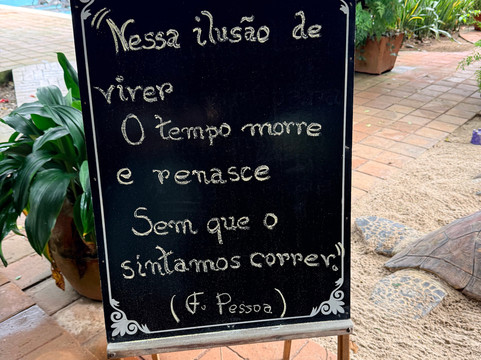 "Nessa ilusão de
virer
O tempo morre
e renasce
Sem que o
sintamos correr."
(F. Pessoa)